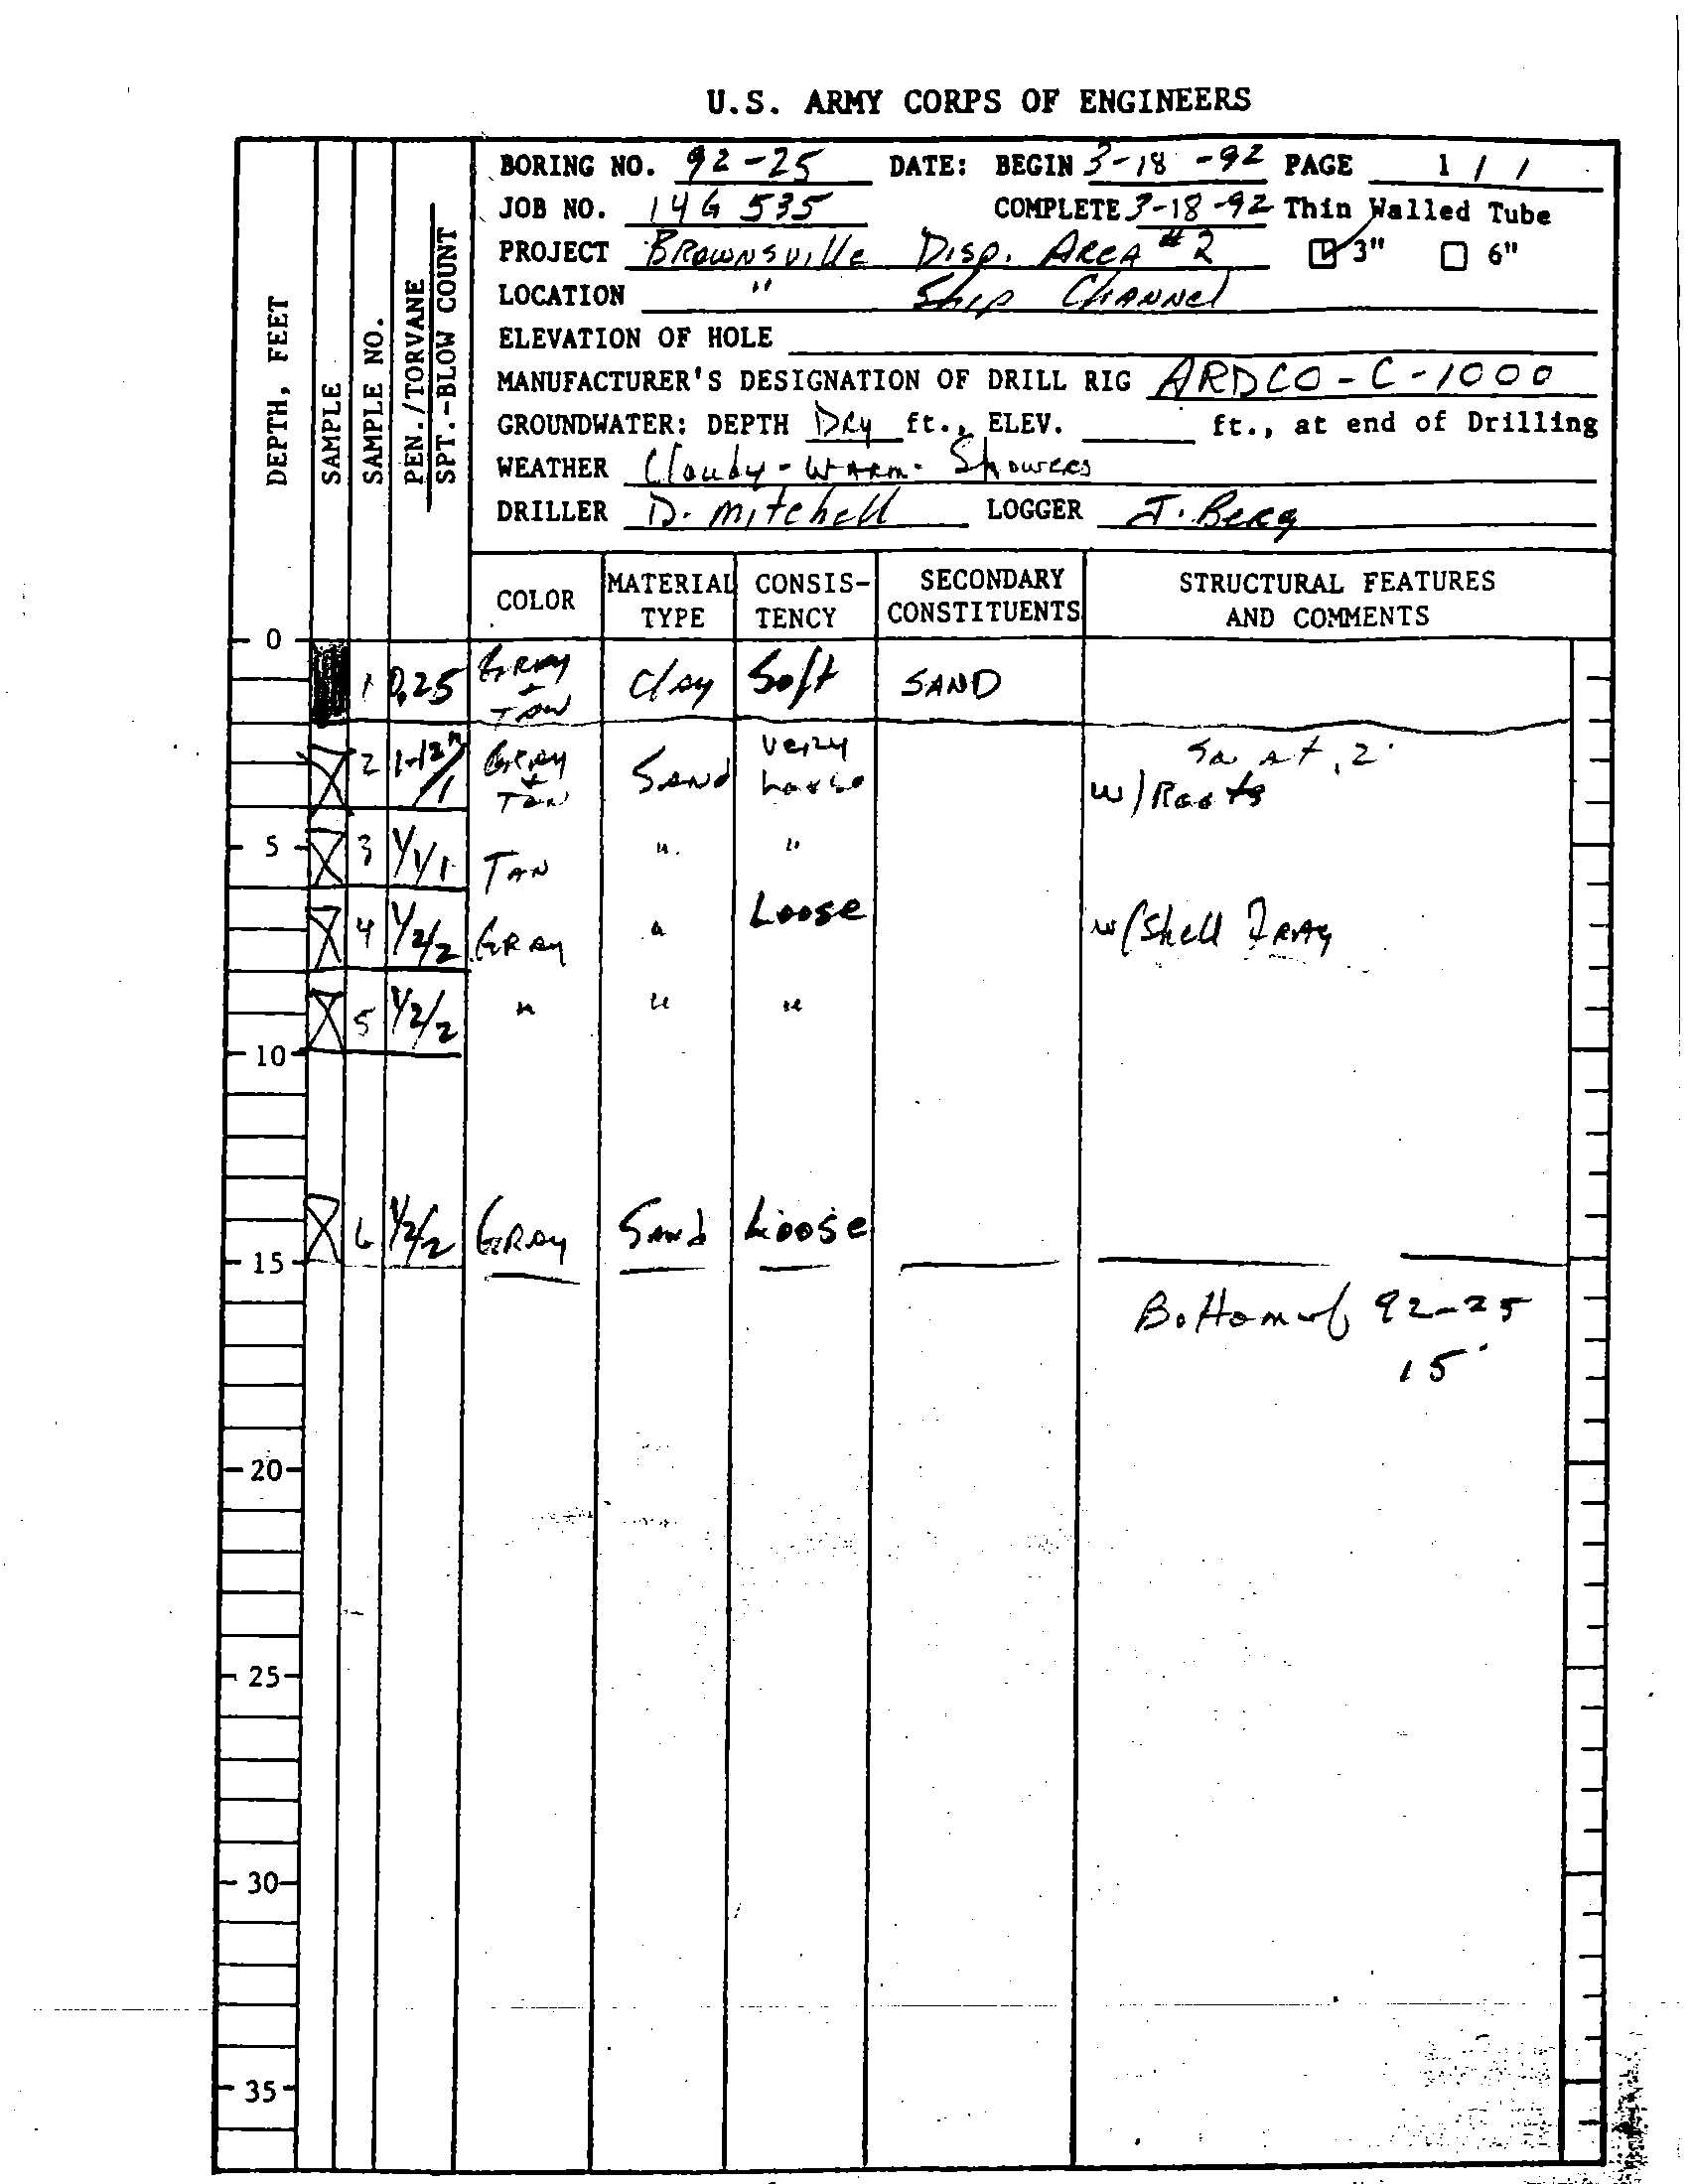 U.S. ARMY CORPS OF ENGINEERS
BORING NO. 92-25 DATE: BEGIN 3-18-92 PAGE 1 / 1
JOB NO. 14G 535 COMPLETE 3-18-92 Thin Walled Tube
PROJECT Brownsville Disp. Area #2 3" 6"
LOCATION " Ship Channel
ELEVATION OF HOLE
MANUFACTURER'S DESIGNATION OF DRILL RIG ARDCO-C-1000
GROUNDWATER: DEPTH Dry ft., ELEV. ft., at end of Drilling
WEATHER Cloudy - Warm - Showers
DRILLER D. Mitchell LOGGER J. Berg
DEPTH, FEET
SAMPLE
SAMPLE NO.
PEN./TORVANE
SPT.-BLOW COUNT
COLOR MATERIAL TYPE CONSIS-TENCY SECONDARY CONSTITUENTS STRUCTURAL FEATURES AND COMMENTS
0
1 0.25 Gray + Tan Clay Soft SAND
2 1-12"/1 Gray + Tan Sand Very Loose Sa at, 2'
w/ Roots
5 3 1/1/1 Tan " "
4 1/2/2 Gray " Loose w/ Shell Frag
5 1/2/2 " " "
10
6 1/2/2 Gray Sand Loose
15
Bottom of 92-25
15'
20
25
30
35